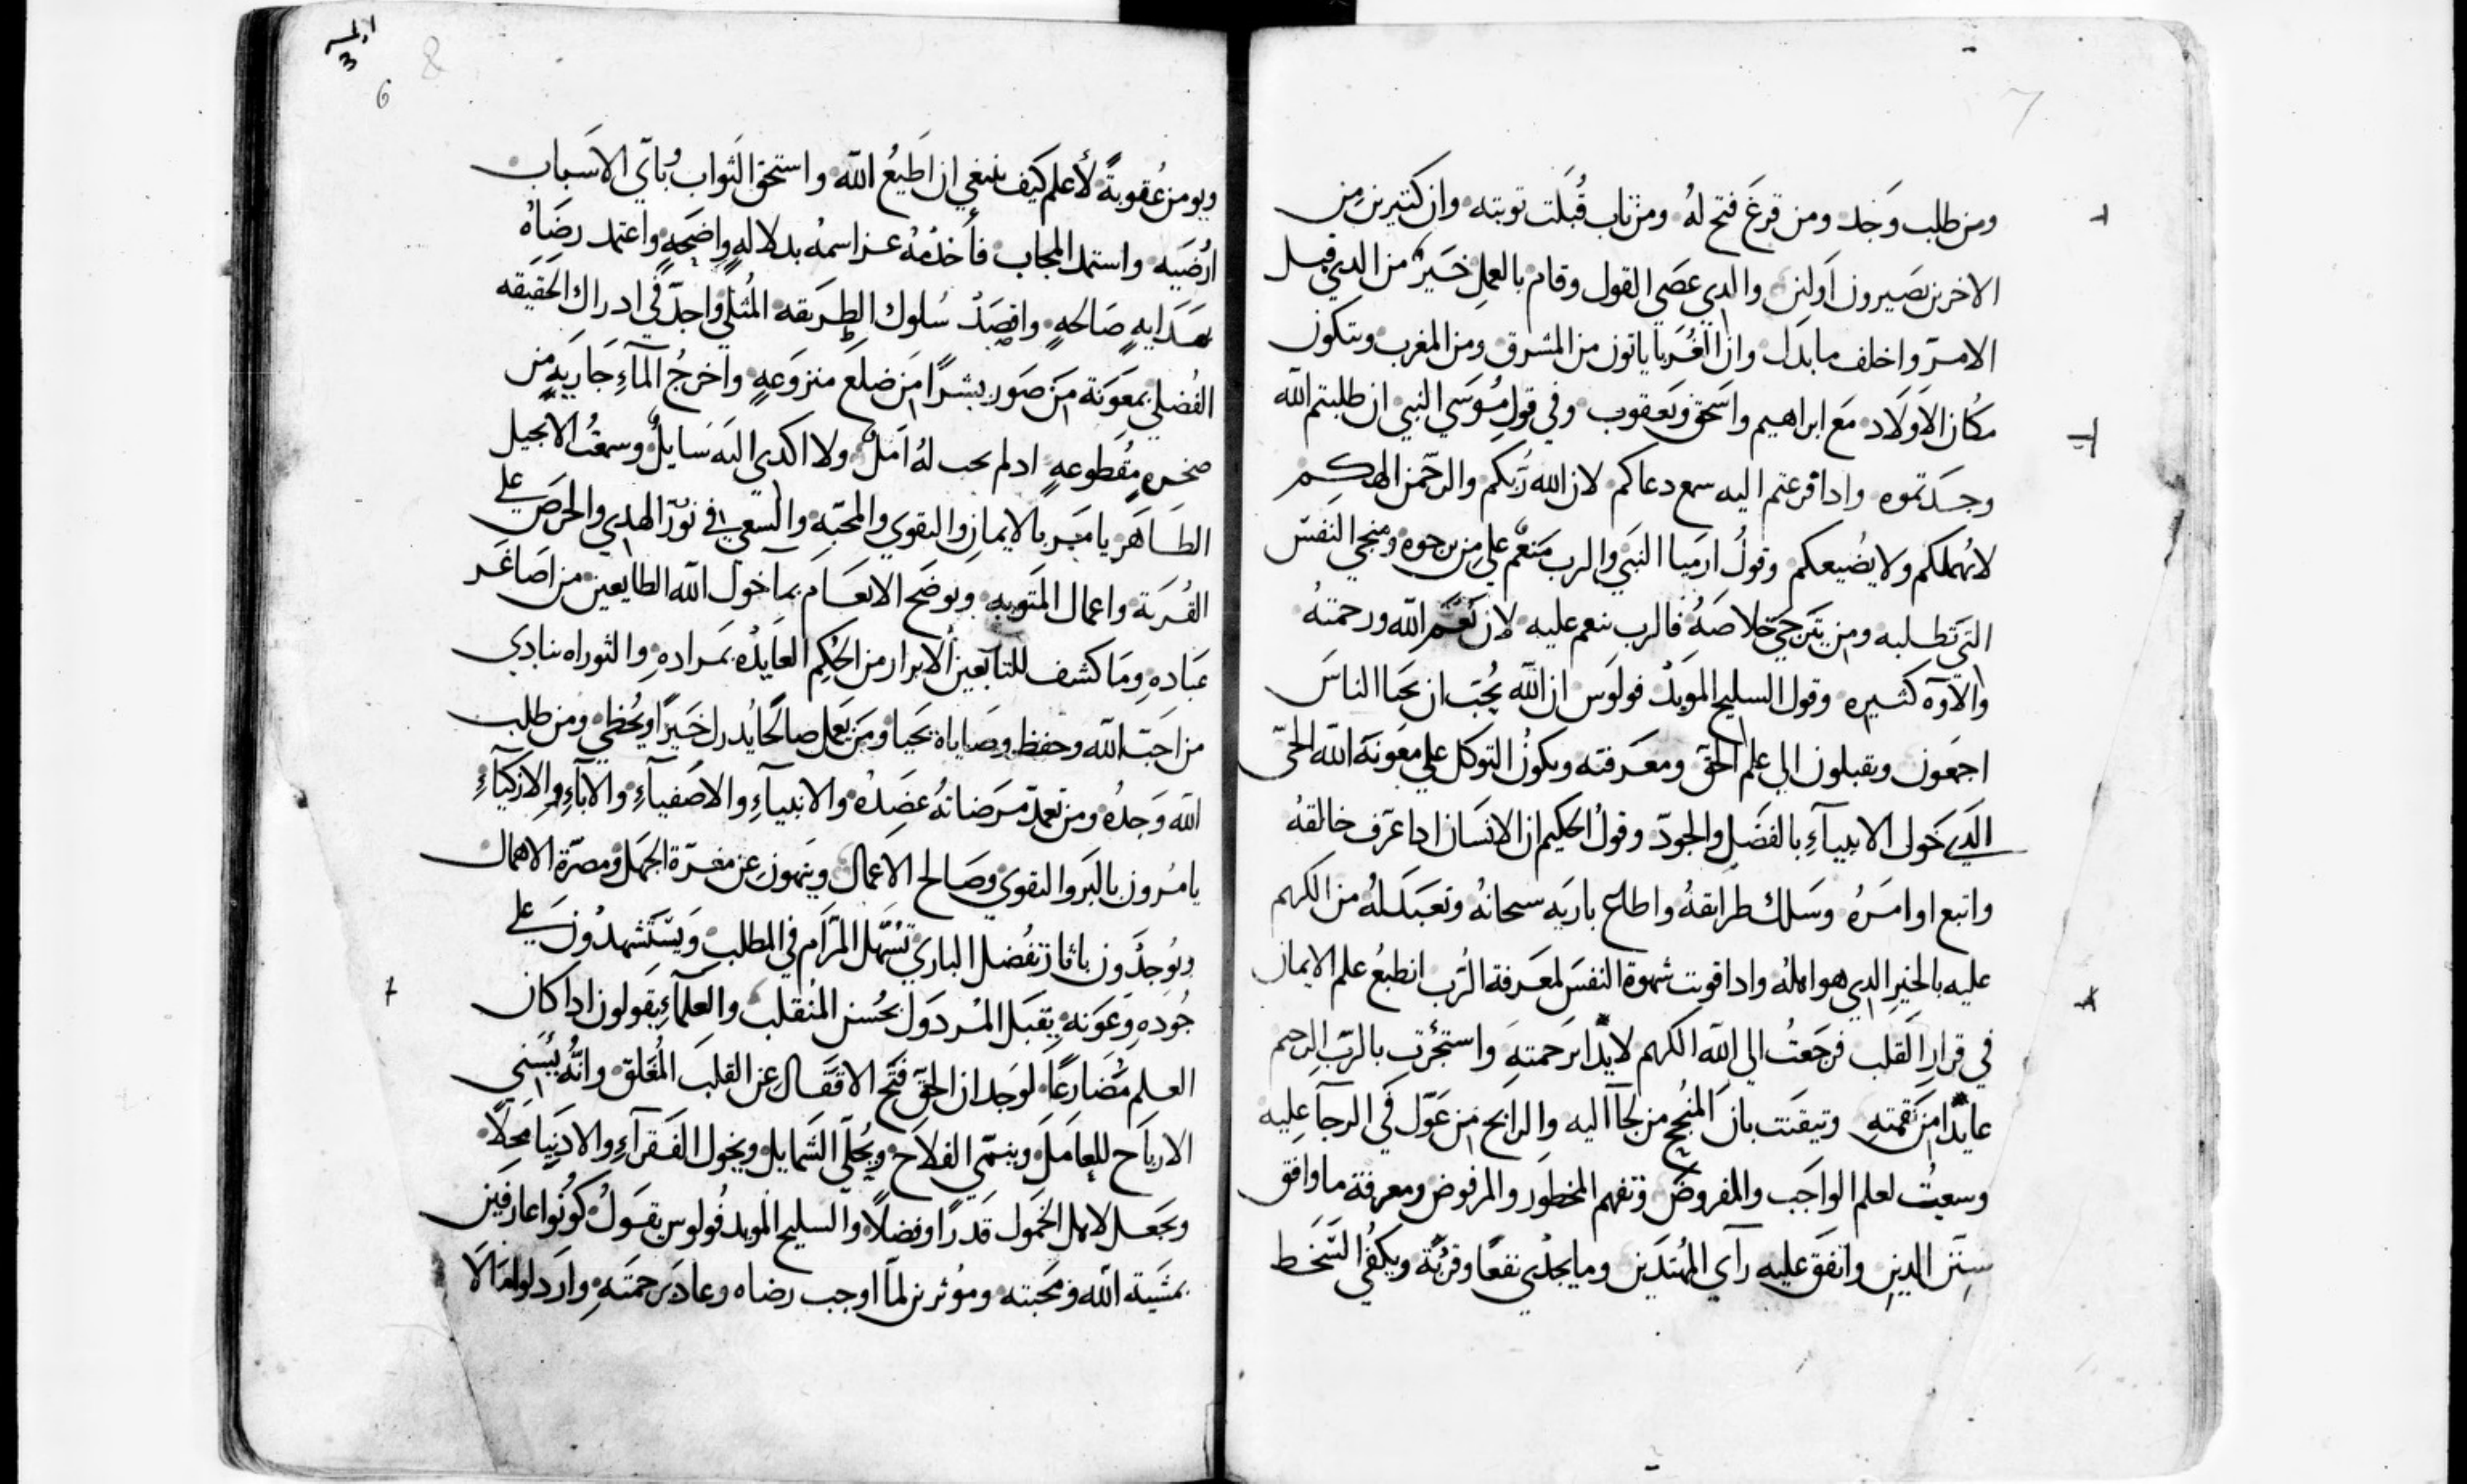 7
ومن طلب وَجد ومن قرعَ فتح لهُ ومن تاب قُبلَت توبته وان كتيرين من
الاخرين يصَيرون اَولين والدي عصَي القول وقام بالعملِ خَيرٌ من الدي قبل
الامرَ واخلف ما بدَل وان الغُرَبا ياتون من المشرق ومن المغرب ويتكون
مكان الاَولاد مَع ابراهيم واسَحق ويَعقوب وفي قولِ مُوسَي النبي ان طلبتم الله
وجَدتموه وادا قرعتم اليه سمع دعاكم لان الله رَبكم والرحَمن الهكم
لا يُهملكم ولا يضُيعكم وقولُ ارميا النبَي والرب مَنعمٌ علي من يرجوه ومنجي النفسَ
التي تطلبه ومن يَترجيَ خلاصَهُ فالرب ينعم عليه لان نعَم الله ورحمتهُ
والاوَه كثيره وقول السليح المويدُ فولوس ان الله يُحبَ ان يَحيا الناسَ
اجمَعون ويقبلون الي علم الحقَ ومعَرفته ويكونُ التوكل علي معَونة الله الحيَ
الَدي خَول الانبيآءِ بالفضَلِ والجودَ وقولُ الحكيم ان الانسَان ادا عَرف خالقهُ
واتبع اوامَرهُ وسَلك طرايقهُ واطاع باريَه سبحانهُ وتعَبدَ لهُ من الكريم
عليه بالخيرِ الدي هو اهلهُ وادا قويت شهوة النفسَ لمعَرفة الرَب انطبعُ علم الايمان
في قرارِ القلب فرَجَعتُ الي الله الكريم لايدًا برَحمتهِ واستجَرت بالربَ الرحيم
عايدًا من نَقمتهِ وتيقَنت بان المنُجح من لجآ اليه والرابح من عَوّل في الرجآ عليه
وسعيتُ لعلم الواجَب والمفروضَ وتفهم المحظوَر والمرفوض ومعرفة ما وافق
سنَن الدينِ واتفقَ عليه رآي المهُتدَين وما يجدُي نفعًا وقربُةً ويكفُي السَخط
6 8
ويومن عُقوبةً لأعلم كيَف ينبغي ان اَطيعُ الله واستحق الثَواب وُبايَ الاسَباب
ارُضَيه واستمد المجاب فأخدُهُ عن اسمهُ بدلالهٍ واضَحهٍ واعتمد رضَاهُ
بهَدَايهٍ صَالحهٍ واقصَدُ سُلوك الطَريقه المثُلي واجدَ في ادراك الحقيَقه
الفُضلي بمعَونَة من صَور بشرًا من ضلعَ منزوعَهٍ واخَرجُ المآءِ جَاريَهٍ من
صخرهٍ مقُطوعهٍ ادلم يحب لهُ امَلٌ ولا اكدي اليَه سَايلٌ وسمعتُ الانجيل
الطَاهَر يامَر بالايمانِ والتقوي والمحبَه والسَعيِ في نوُرَ الهدي والحرَص علي
القُربَة واعمال المَثوبهِ ويوضَح الانعَامَ بمآ خَولَ الله الطايعين من اصَاغَر
عَبَادهِ ومَا كشف للتابَعين الابرار من الحكِم العَايدُه بمرادهِ والتوراه ينادي
من احَبَ الله وحفظ وصَاياه يَحَيا ومَن يَعَمل صالحًا يُدرك خَيرًا ويحُظي ومن طلب
الله وَجدُهُ ومن تعمدَ مَرضَاتهُ عضَدهُ والانبيآءِ والاصَفيآءِ والابآءِ والازكيآءِ
يامُرون بالبَر والتقويَ وصَالح الاعمال وينهَون عن مغَرَة الجهَل ومضَرَة الاهمال
ويوُجدُون بانا ن تفُضل الباريَ تسُهَل المرَام في المطلب وَيستَشهدُونَ عَلي
جُودهِ وعَونهِ يقَبَل المردَول بحُسن المنُقلب والعلمآءِ يقَولون ادا كان
العلم مُضَارعًا لوَجدان الحقَ فتَح الاقفَال عن القلب المُغَلق وانَهُ يُسَني
الارباَح للعِامَلَ وينمَي الفلاَح ويُحلَي الشَمايل ويخول الفَقرآءِ والادنيَا مَحِلًا
ويَجعَل لاهل الخمَول قدَرًا وفضلًا والسليح المويد فُولوس يقَولُ كوُنُوا عارفين
بمشَيَة الله ومَحبَته وموُثرين لمَا اوجب رضاه وعادَ برحمتَهِ